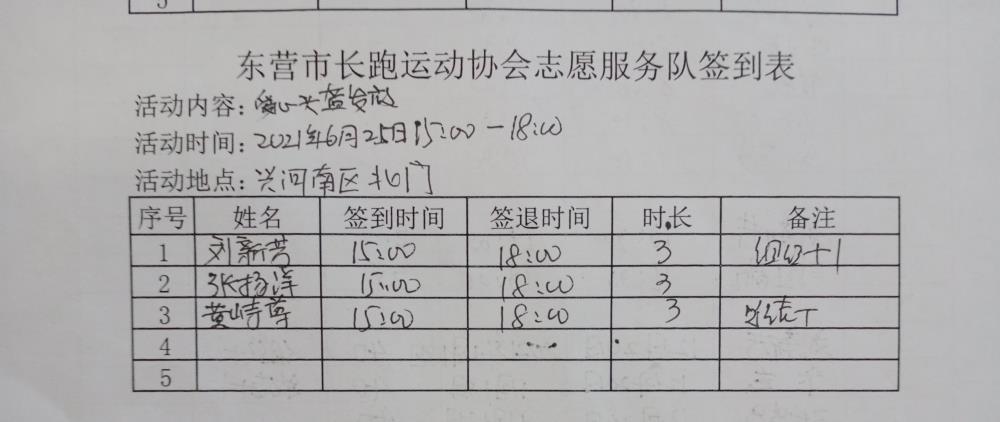 5
东营市长跑运动协会志愿服务队签到表
活动内容：爱心头盔发放
活动时间：2021年6月25日15:00-18:00
活动地点：兴河南区北门
序号 姓名 签到时间 签退时间 时长 备注
1 刘新芳 15:00 18:00 3 组织+1
2 张扬洋 15:00 18:00 3
3 黄 15:00 18:00 3
4
5